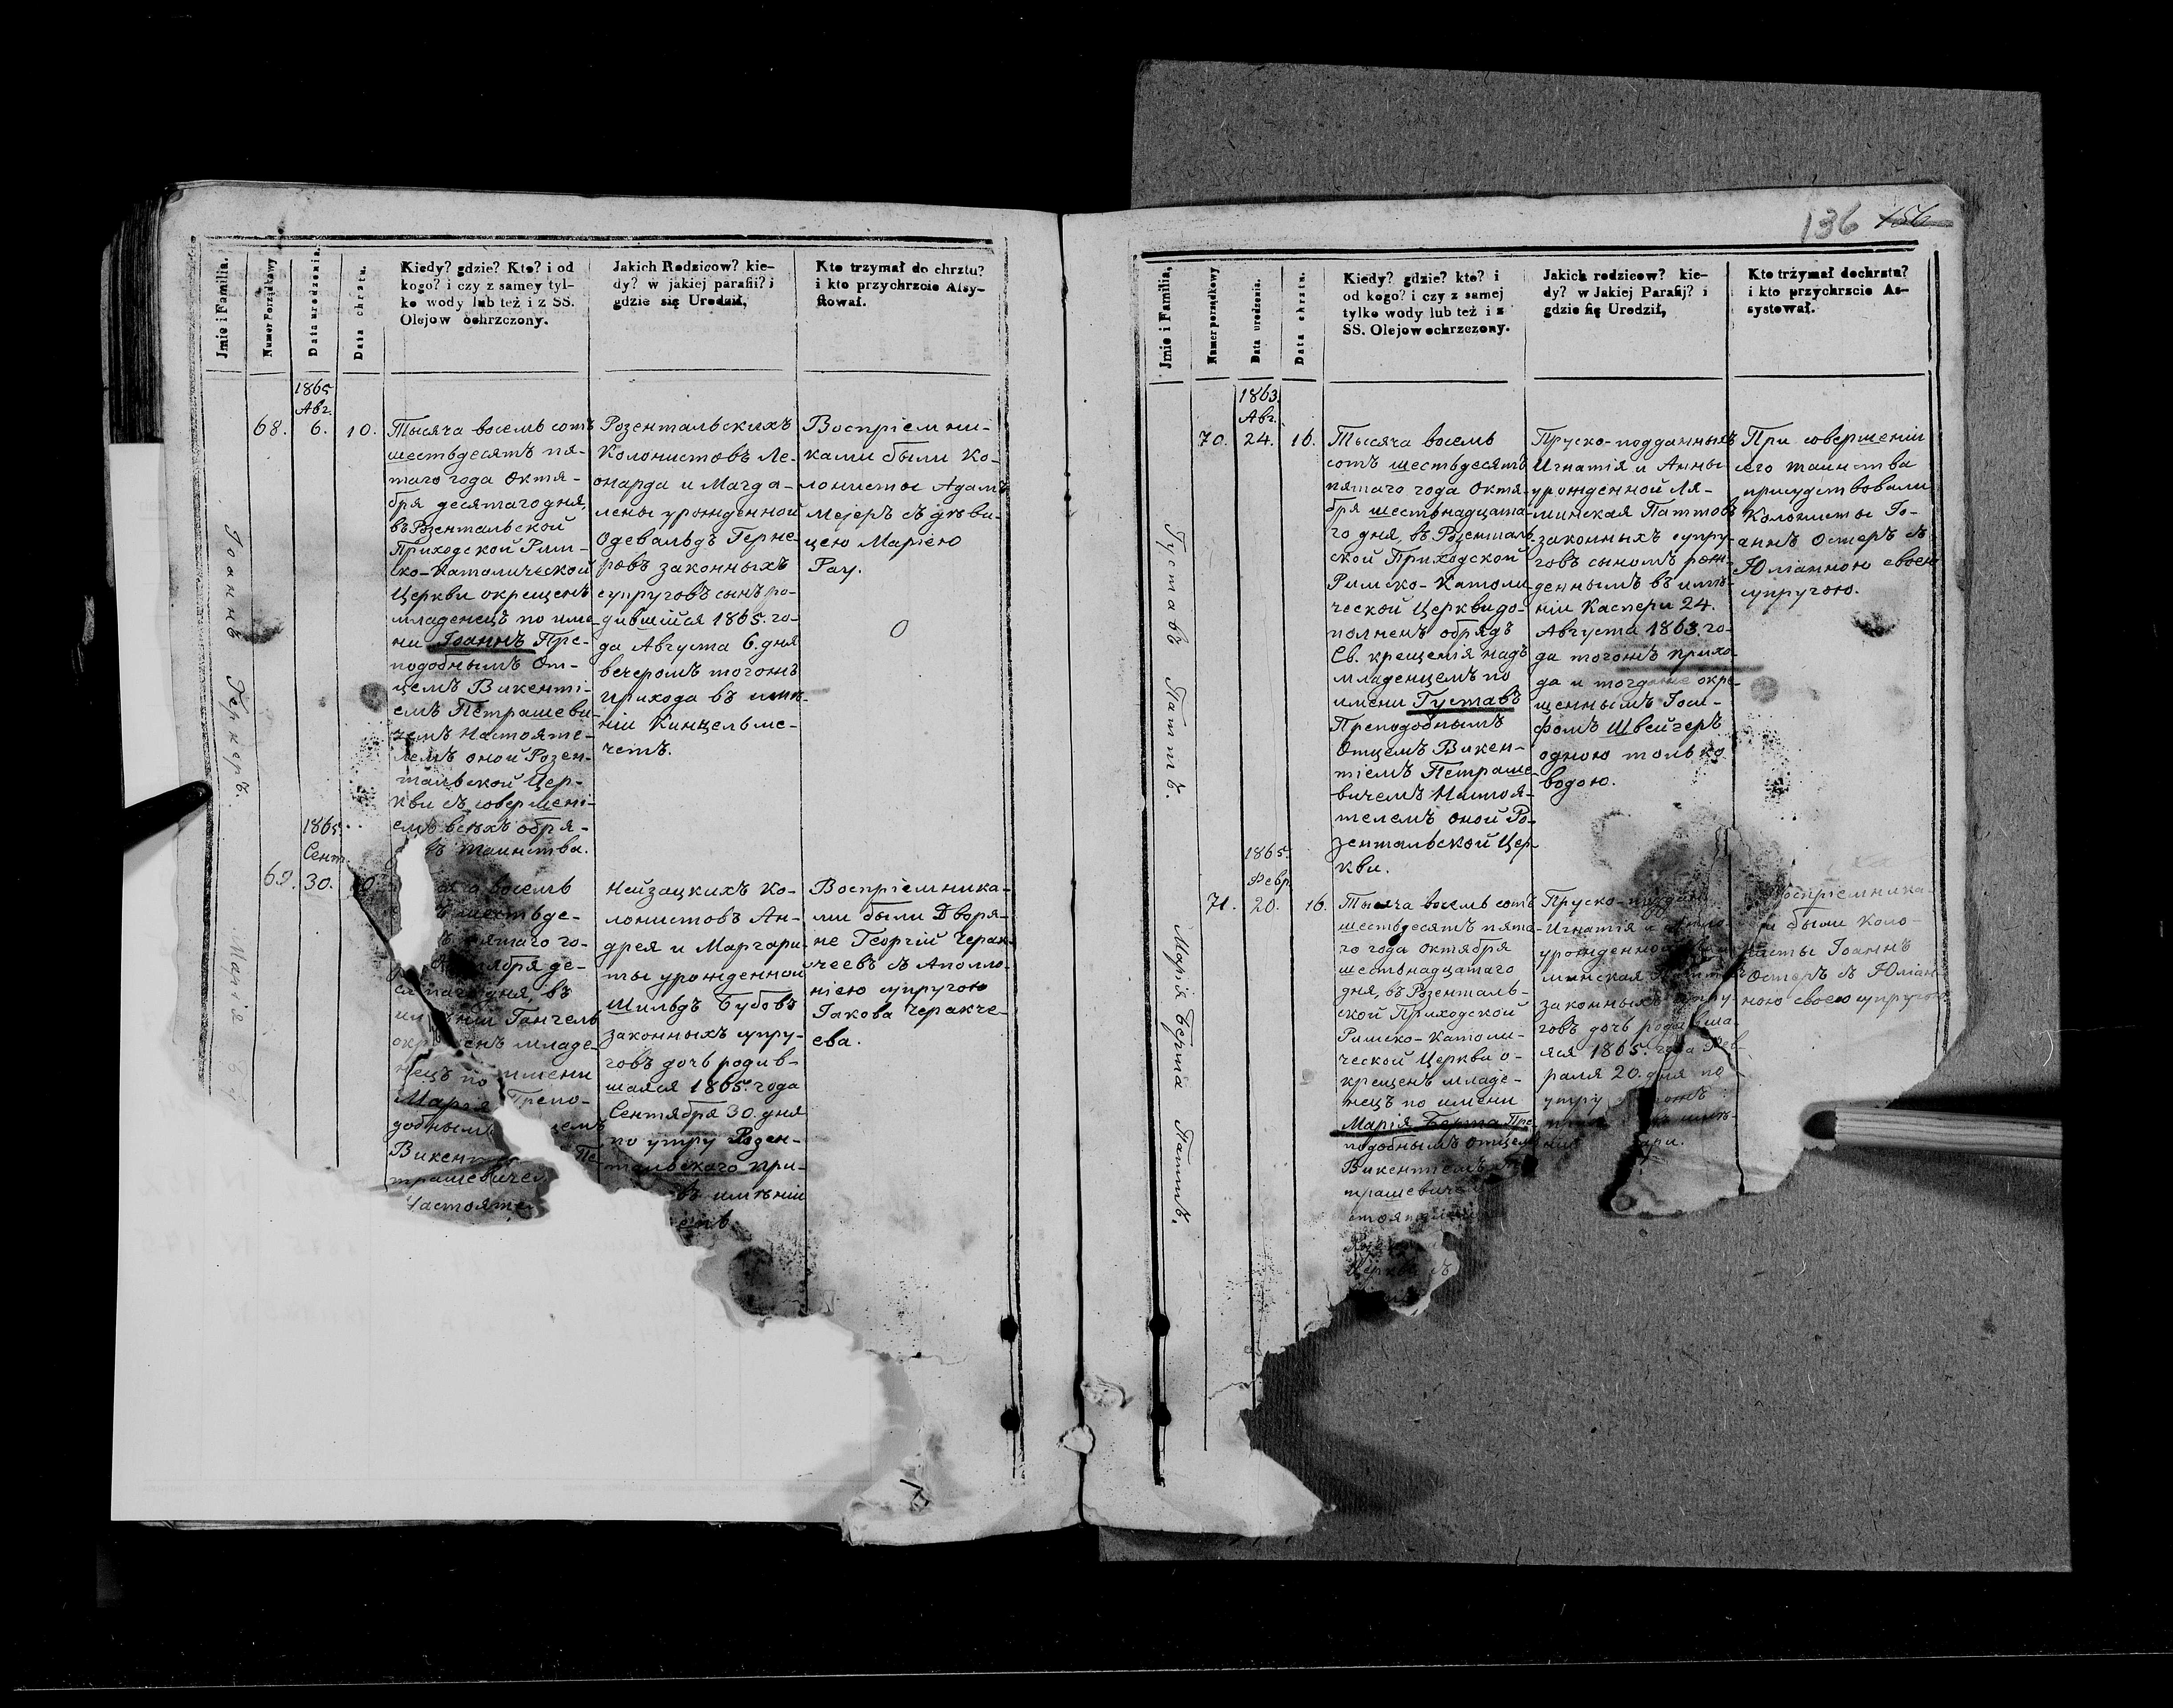 136 156
Jmie i Familia.
Numer Porządkowy
Data urodzenia.
Data chrztu.
Kiedy? gdzie? Kto? i od
kogo? i czy z samey tyl-
ko wody lub też i z SS.
Olejow ochrzczony.
Jakich Rodzicow? kie-
dy? w jakiej parafii? i
gdzie się Urodził,
Kto trzymał do chrztu?
i kto przychrzcie Assy-
stował.
Іоаннъ Гернеръ.
1865
Авг.
68. 6. 10.
Тысяча восемь сотъ
шестьдесятъ пя-
таго года Октя-
бря десятаго дня,
въ Розентальской
Приходской Рим-
ско-Католической
Церкви окрещенъ
младенецъ по име-
ни Іоаннъ Пре-
подобнымъ От-
цемъ Викенті-
емъ Петрашеви-
чемъ Настояте-
лемъ оной Розен-
тальской Цер-
кви съ совершені-
емъ всѣхъ обря-
таинства.
Розентальскихъ
Колонистовъ Ле-
онарда и Магда-
лены урожденной
Одевальдъ Герне-
ровъ законныхъ
супруговъ сынъ ро-
дившійся 1865. го-
да Августа 6. дня
вечеромъ тогожъ
прихода въ имѣ-
ніи Кинцельме-
четъ.
Воспріемни-
ками были Ко-
лонисты Адамъ
Мејеръ съ дѣви-
цею Маріею
Рау.
Марія
1865.
Сент.
69. 30. 10.
восемь
шестьде-
пятаго го-
Октября де-
сятаго дня, въ
Гангель
окр енъ младе-
нецъ по имени
Марія Препо-
добнымъ емъ
Викен Пе-
трашевичем
Настояте
Нейзацкихъ Ко-
лонистовъ Ан-
дрея и Маргари-
ты урожденной
Шильдъ Бубовъ
законныхъ супру-
говъ дочь родив-
шаяся 1865. года
Сентября 30. дня
по утру Розен-
тальскаго при-
въ имѣніи
Воспріемника-
ми были Дворя-
не Георгій Черак-
чеевъ съ Аполло-
ніею супругою
Іакова Черакче-
ева.
Jmie i Familia,
Numer porządkowy
Data urodzenia.
Data chrztu.
Kiedy? gdzie? kto? i
od kogo? i czy z samej
tylko wody lub też i z
SS. Olejow ochrzczony.
Jakich rodzicow? kie-
dy? w Jakiej Parafij? i
gdzie się Urodził,
Kto trżymał dochrztu?
i kto przychrzcie As-
systował.
Густавъ Паттъ.
1863.
Авг.
70. 24. 16.
Тысяча восемь
сотъ шестьдесятъ
пятаго года Октя-
бря шестьнадцата-
го дня, въ Розенталь-
ской Приходской
Римско-Католи-
ческой Церкви до-
полненъ обрядъ
Св. крещенія надъ
младенцемъ по
имени Густавъ
Преподобнымъ
Отцемъ Викен-
тіемъ Петраше-
вичемъ Настоя-
телемъ оной Ро-
зентальской Цер-
кви.
Пруско-подданныхъ
Игнатія и Анны
урожденной Ля-
минская Паттовъ
законныхъ супру-
говъ сыномъ рож-
деннымъ въ имѣ-
ніи Каспери 24.
Августа 1863. го-
да тогожъ прихо-
да и тогдаже окре-
щеннымъ Іоси-
фомъ Швейгеръ
одною только
водою.
При совершеніи
сего таинства
присудствовали
Колонисты Іо-
аннъ Остеръ съ
Юліанною своею
супругою.
Марія Берта Паттъ.
1865.
Февр.
71. 20. 16.
Тысяча восемь сотъ
шестьдесятъ пята-
го года Октября
шестьнадцатаго
дня, въ Розенталь-
ской Приходской
Римско-Католи-
ческой Церкви о-
крещенъ младе-
нецъ по имени
Марія Берта Пре-
подобнымъ Отцемъ
Викентіемъ
трашевиче
Церкви съ
Пруско-
Игнатія и
урожденно
минская
законныхъ супру-
говъ дочь родивша-
яся 1865. года Фев-
раля 20. дня по
утру
имѣ-
Воспріемника-
ми были Коло-
нисты Іоаннъ
Остеръ съ Юліан-
ною своею супругою.